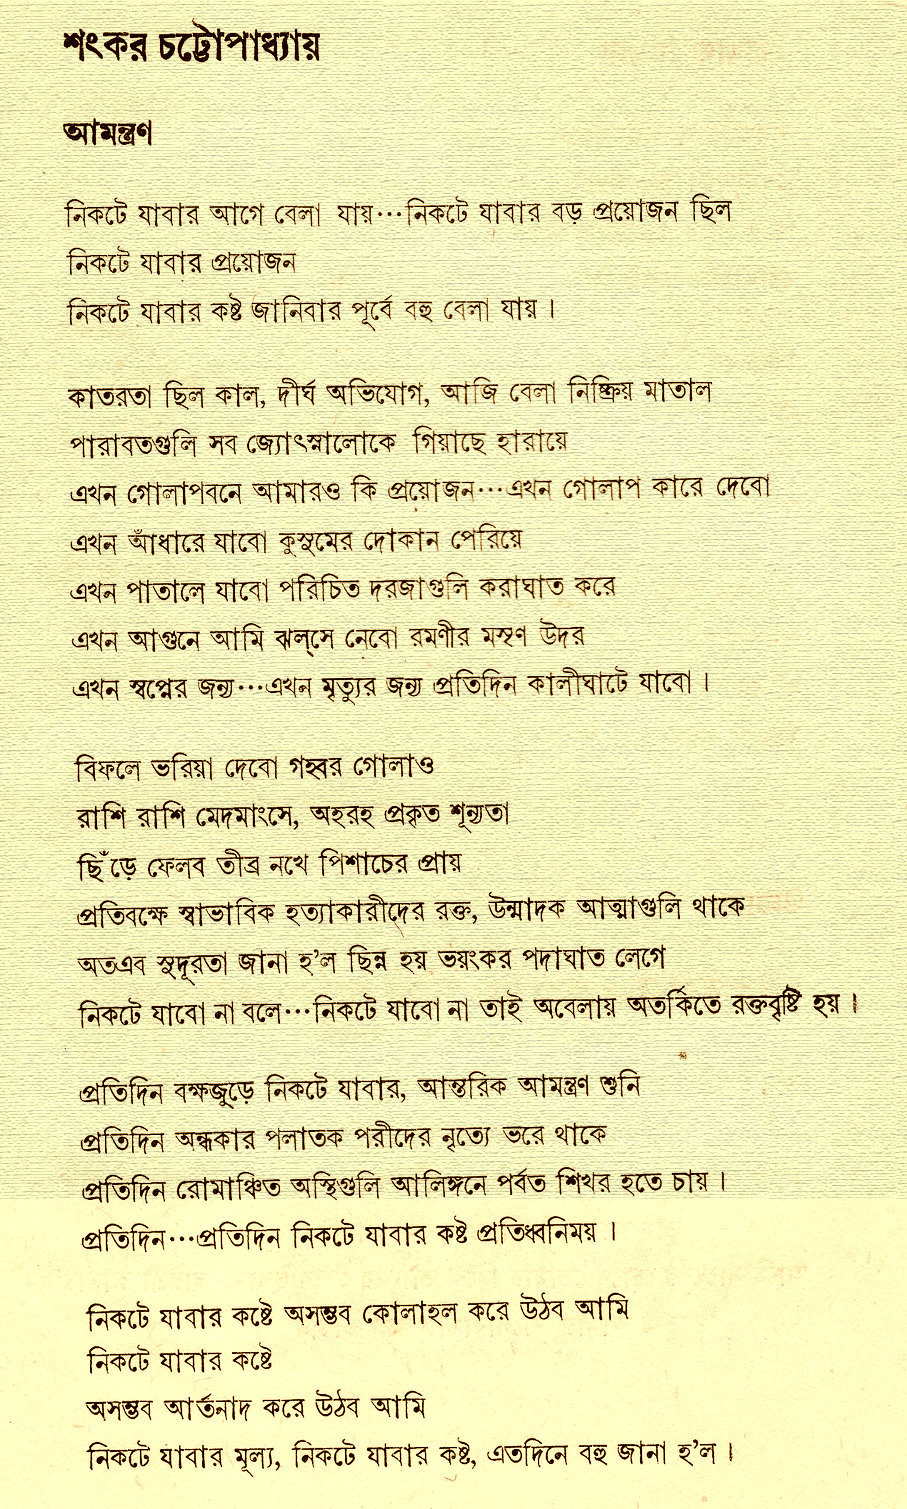 শংকর চট্টোপাধ্যায়
আমন্ত্রণ
নিকটে যাবার আগে বেলা যায়···নিকটে যাবার বড় প্রয়োজন ছিল
নিকটে যাবার প্রয়োজন
নিকটে যাবার কষ্ট জানিবার পূর্বে বহু বেলা যায়।
কাতরতা ছিল কাল, দীর্ঘ অভিযোগ, আজি বেলা নিষ্ক্রিয় মাতাল
পারাবতগুলি সব জ্যোৎস্নালোকে গিয়াছে হারায়ে
এখন গোলাপবনে আমারও কি প্রয়োজন···এখন গোলাপ কারে দেবো
এখন আঁধারে যাবো কুসুমের দোকান পেরিয়ে
এখন পাতালে যাবো পরিচিত দরজাগুলি করাঘাত করে
এখন আগুনে আমি ঝল্‌সে নেবো রমণীর মসৃণ উদর
এখন স্বপ্নের জন্য···এখন মৃত্যুর জন্য প্রতিদিন কালীঘাটে যাবো।
বিফলে ভরিয়া দেবো গহ্বর গোলাও
রাশি রাশি মেদমাংসে, অহরহ প্রকৃত শূন্যতা
ছিঁড়ে ফেলব তীব্র নখে পিশাচের প্রায়
প্রতিবক্ষে স্বাভাবিক হত্যাকারীদের রক্ত, উন্মাদক আত্মাগুলি থাকে
অতএব সুদূরতা জানা হ'ল ছিন্ন হয় ভয়ংকর পদাঘাত লেগে
নিকটে যাবো না বলে···নিকটে যাবো না তাই অবেলায় অতর্কিতে রক্তবৃষ্টি হয়।
প্রতিদিন বক্ষজুড়ে নিকটে যাবার, আন্তরিক আমন্ত্রণ শুনি
প্রতিদিন অন্ধকার পলাতক পরীদের নৃত্যে ভরে থাকে
প্রতিদিন রোমাঞ্চিত অস্থিগুলি আলিঙ্গনে পর্বত শিখর হতে চায়।
প্রতিদিন···প্রতিদিন নিকটে যাবার কষ্ট প্রতিধ্বনিময়।
নিকটে যাবার কষ্টে অসম্ভব কোলাহল করে উঠব আমি
নিকটে যাবার কষ্টে
অসম্ভব আর্তনাদ করে উঠব আমি
নিকটে যাবার মূল্য, নিকটে যাবার কষ্ট, এতদিনে বহু জানা হ'ল।